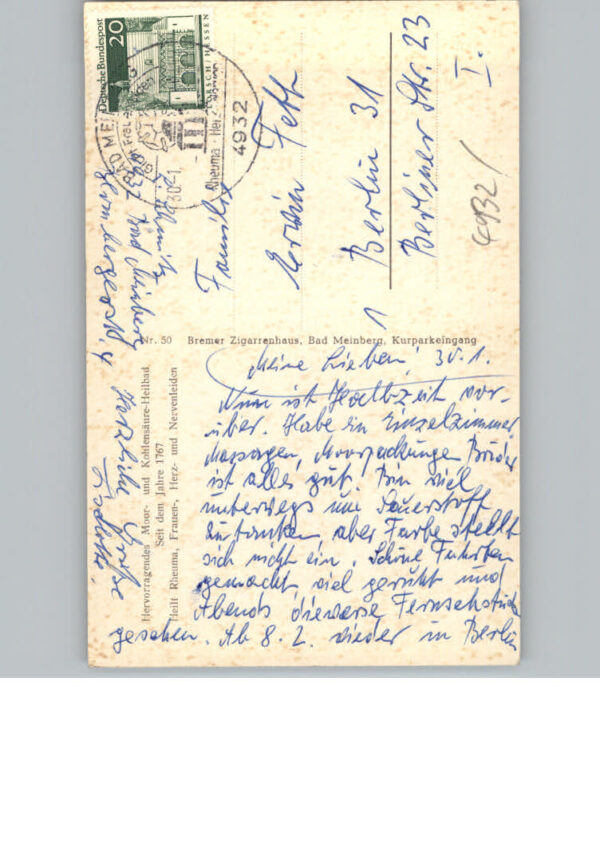 Nr. 50 Bremer Zigarrenhaus, Bad Meinberg, Kurparkeingang
Hervorragendes Moor- und Kohlensäure-Heilbad
Seit dem Jahre 1767
Heilt Rheuma, Frauen-, Herz- und Nervenleiden
Meine Lieben! 30.1.
Nun ist Halbzeit vor-
über. Habe ein Einzelzimmer
Massagen, Moorpackungen Bäder
ist alles gut. Bin viel
unterwegs um Sauerstoff
zu tanken, aber Farbe stellt
sich nicht ein. Schöne Fahrten
gemacht viel geruht und
Abends diverse Fernsehstücke
gesehen. Ab 8.2. wieder in Berlin
Herzliche Grüße
4937 Bad Meinberg
Deutsche Bundespost
20
LORSCH/HESSEN
BAD MEINBERG
Rheuma · Herz
4932
30.-1.
Familie
Erwin Feth
1 Berlin 31
Berliner Str. 23
I.
4932/